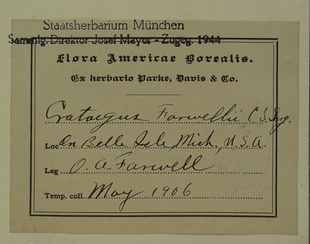 Staatsherbarium München
Sammlg. Direktor Josef Mayer - Zugeg. 1944
Flora Americae Borealis.
Ex herbario Parke, Davis & Co.
Crataegus Farwellii C.S.Sg.
Loc On Belle Isle Mich, U.S.A.
Leg O. A. Farwell
Temp. coll. May 1906